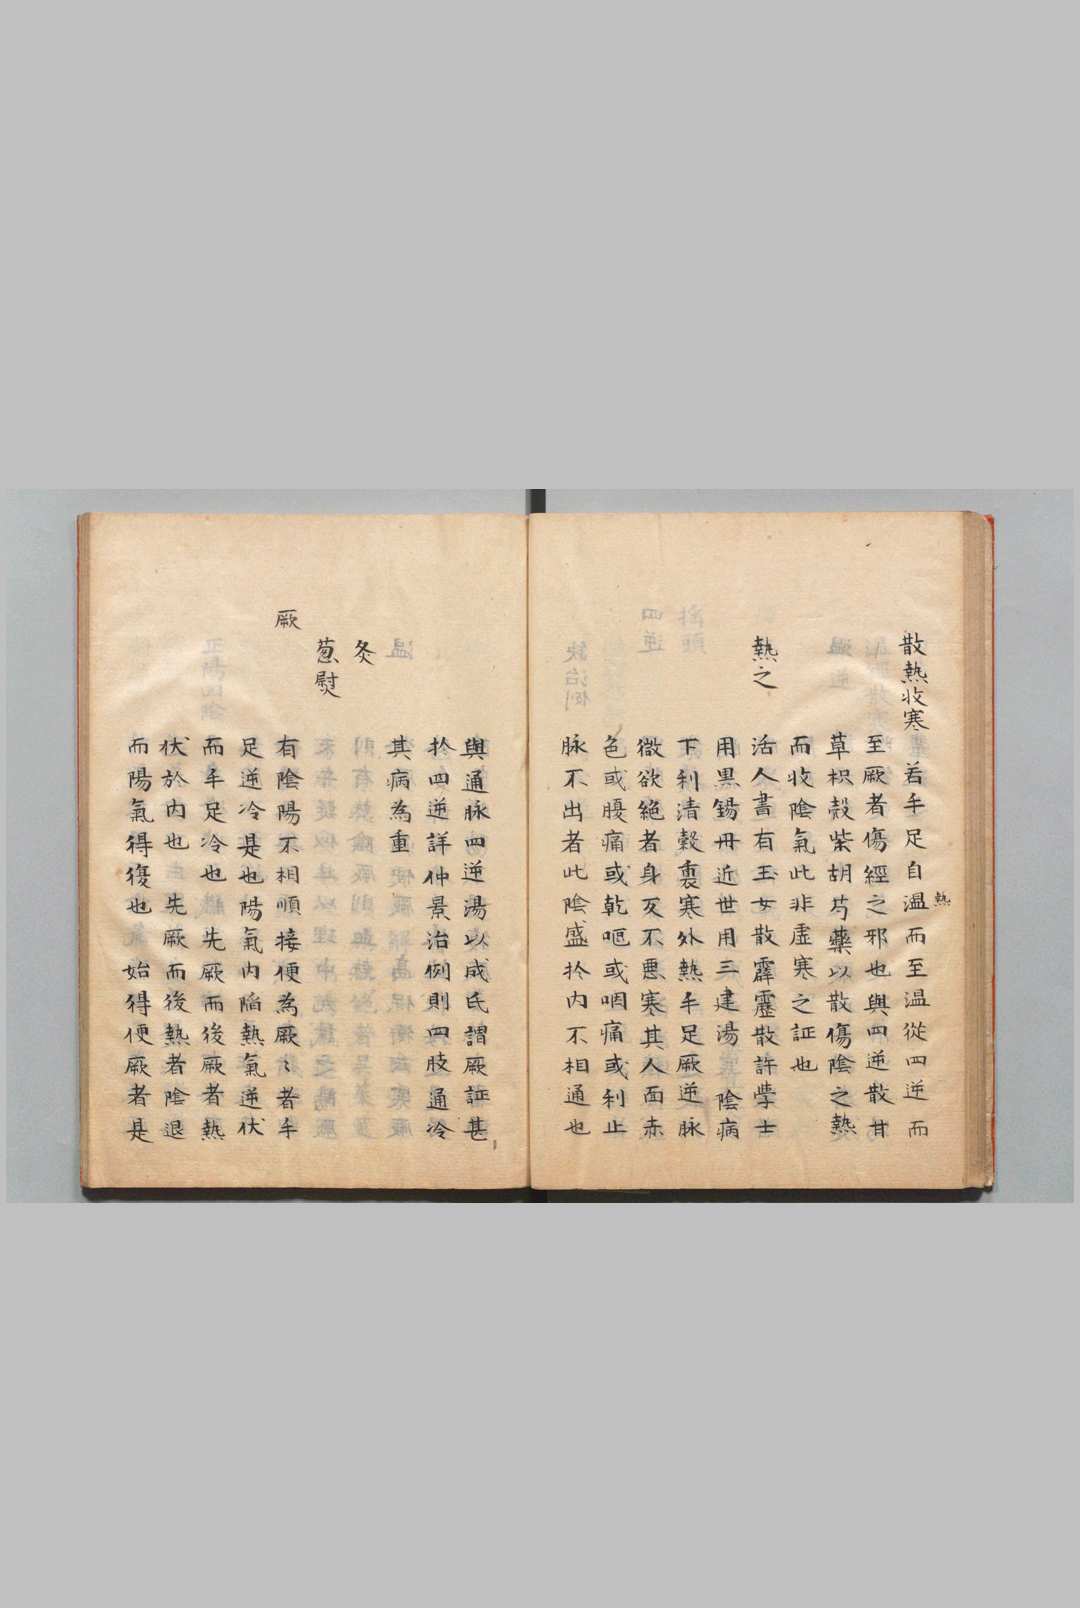 散熱收寒
若手足自温而至温從四逆而
熱
至厥者傷經之邪也與四逆散甘
草枳殻柴胡芍藥以散傷陰之熱
而收陰氣此非虚寒之証也
熱之
活人書有玉女散霹靂散許學士
用黒錫丹近世用三建湯陰病
下利清穀裏寒外熱手足厥逆脉
微欲絶者身反不悪寒其人面赤
色或腹痛或乾嘔或咽痛或利止
脉不出者此陰盛扵内不相通也
與通脉四逆湯以成氏謂厥証甚
扵四逆詳仲景治例則四肢通冷
其病為重
灸
葱熨
厥
有陰陽不相順接便為厥〻者手
足逆冷是也陽氣内陷熱氣逆伏
而手足冷也先厥而後厥者熱
伏於内也先厥而後熱者陰退
而陽氣得復也始得便厥者是